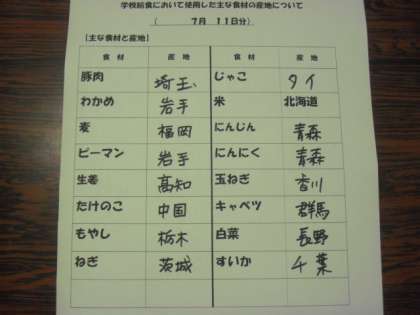 学校給食において使用した主な食材の産地について
( 7月 11日分)
【主な食材と産地】
食材 産地 食材 産地
豚肉 埼玉 じゃこ タイ
わかめ 岩手 米 北海道
麦 福岡 にんじん 青森
ピーマン 岩手 にんにく 青森
生姜 高知 玉ねぎ 香川
たけのこ 中国 キャベツ 群馬
もやし 栃木 白菜 長野
ねぎ 茨城 すいか 千葉